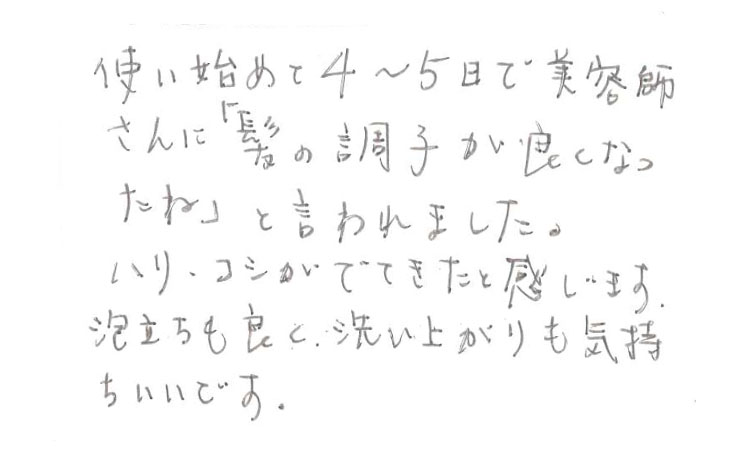 使い始めて4〜5日で美容師
さんに「髪の調子が良くなっ
たね」と言われました。
ハリ・コシがでてきたと感じます.
泡立ちも良く、洗い上がりも気持
ちいいです.